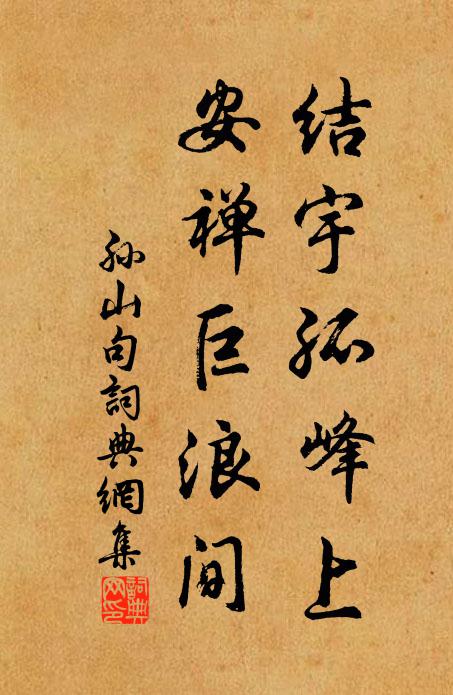 结宇孤峰上
安禅巨浪间
孙山句詞典網集
詞典网印